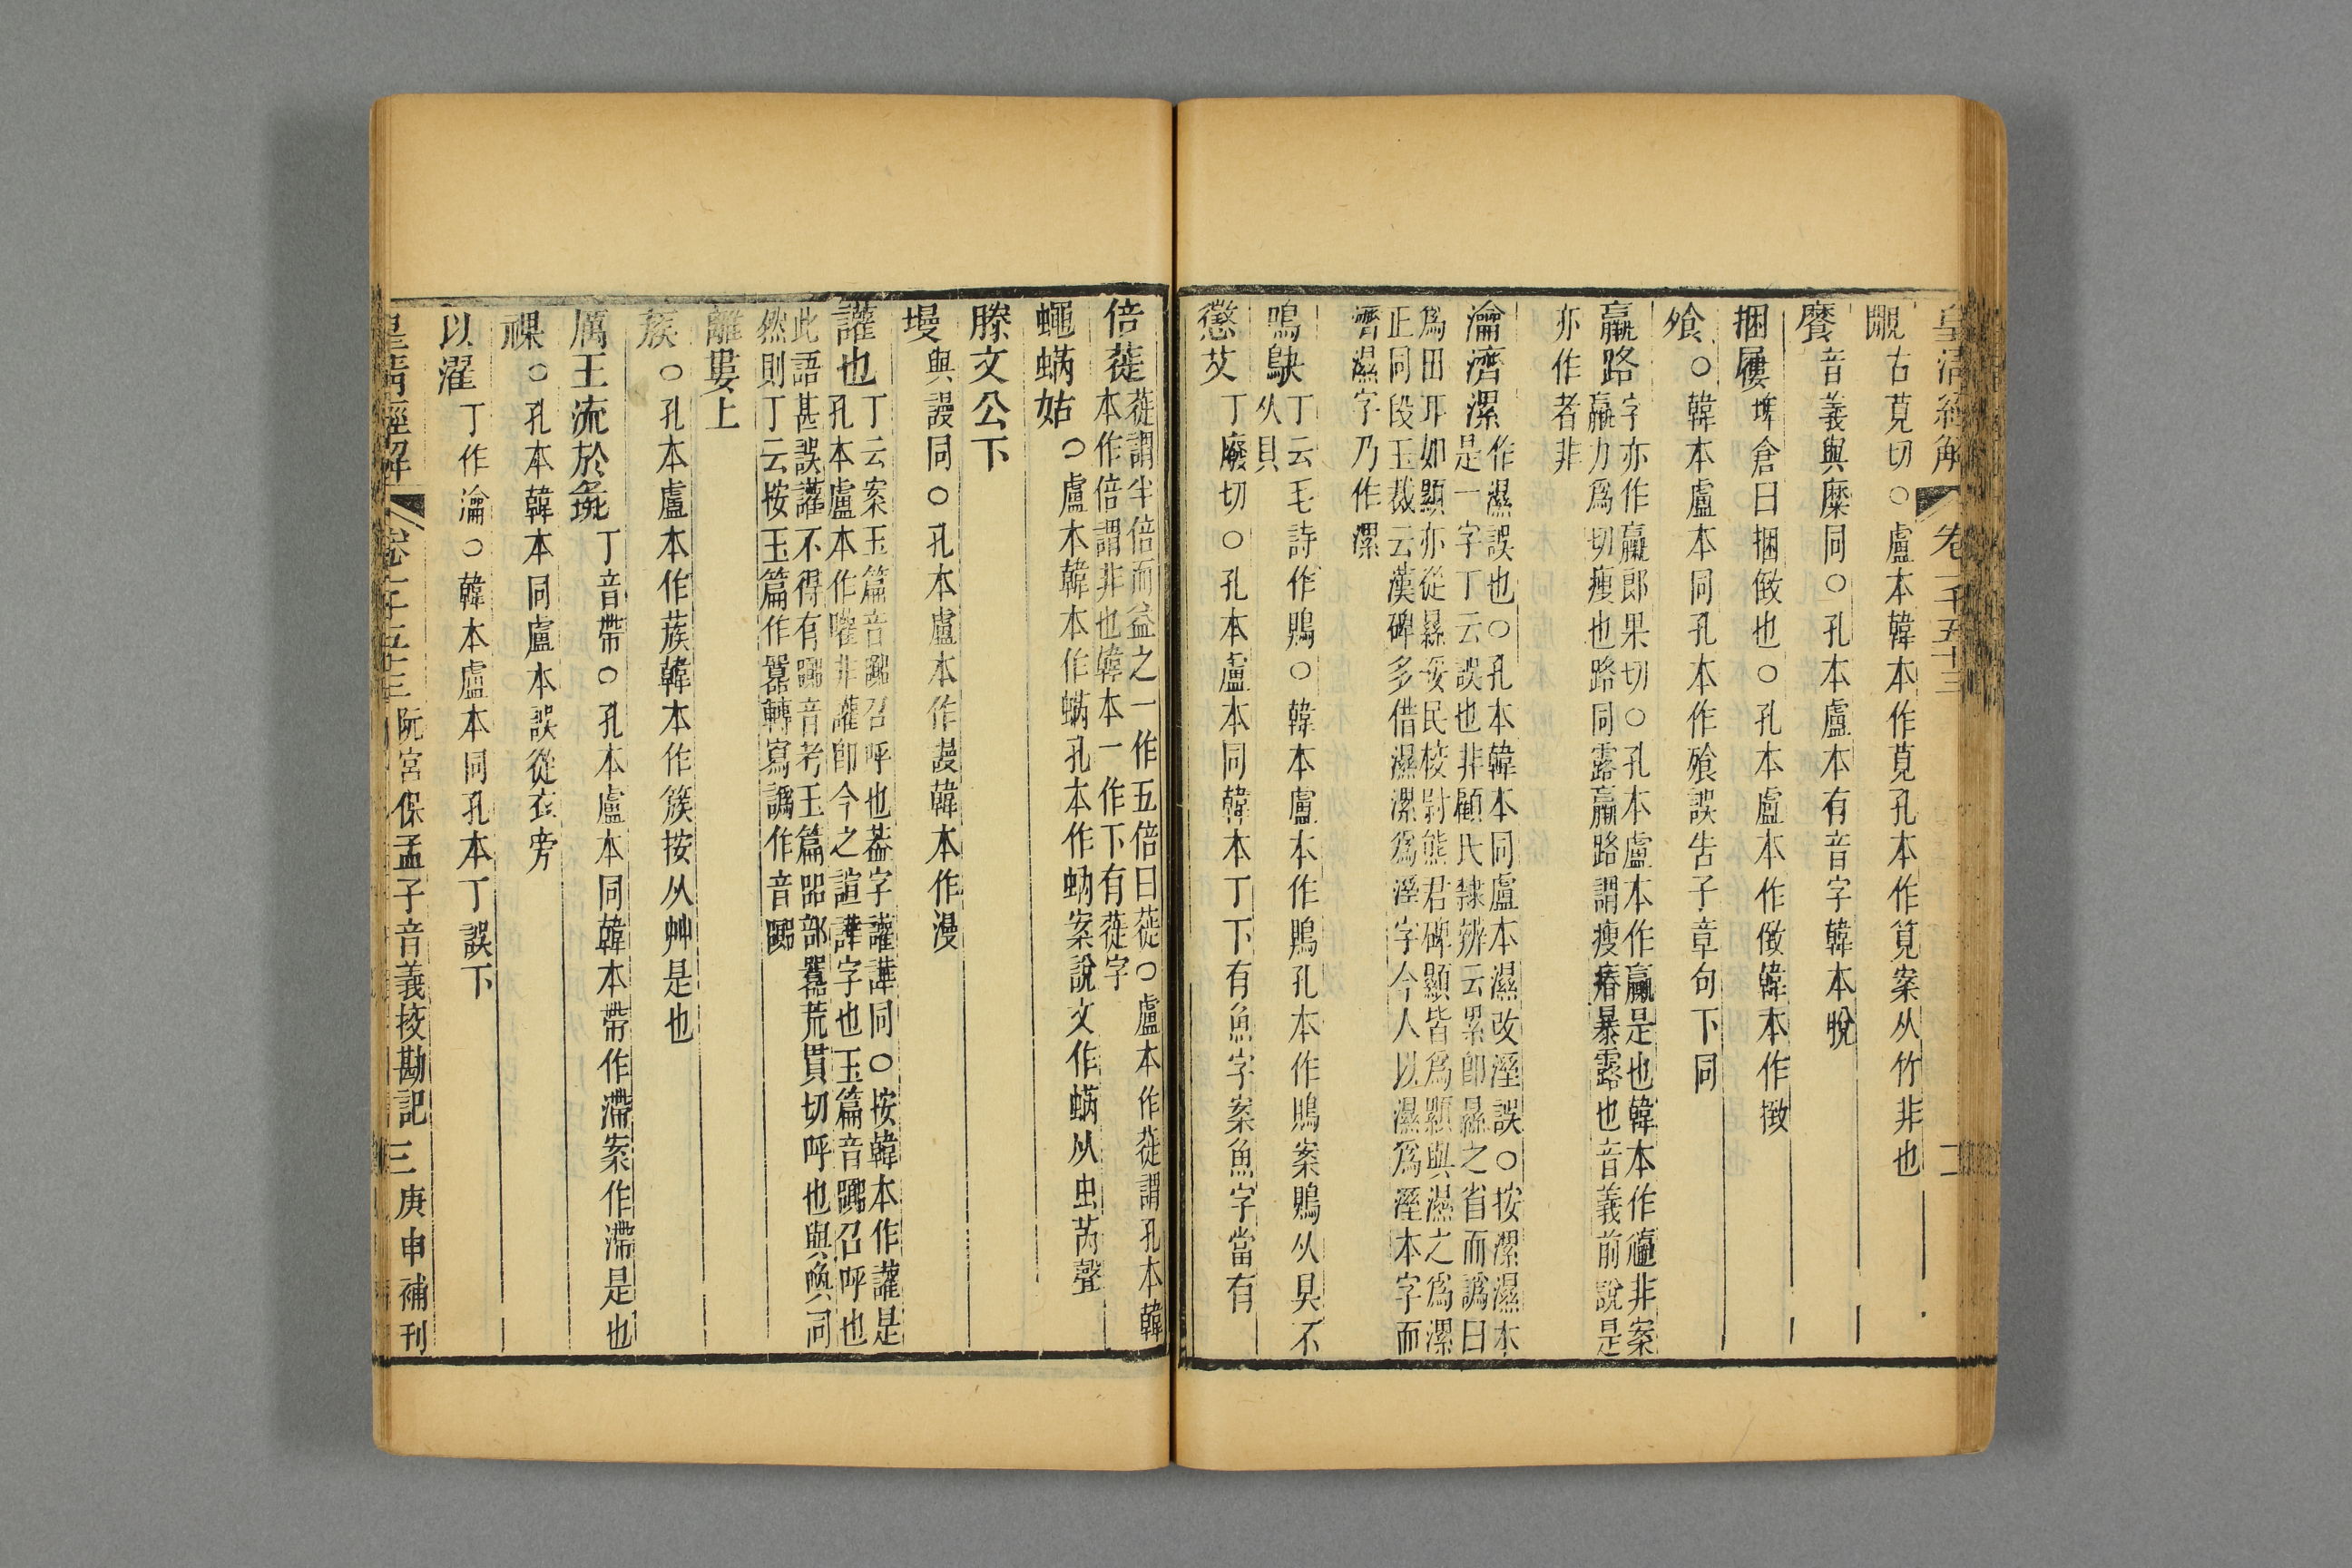 皇清經解 卷一千五十三 二
覵古莧切○盧本韓本作莧孔本作筧案从竹非也
饜音義與檿同○孔本盧本有音字韓本脫
捆屨埤倉曰捆㨖也○孔本盧本作㨖韓本作緻
飧○韓本盧本同孔本作飱誤告子章句下同
羸路字亦作羸郎果切○孔本盧本作羸是也韓本作㼈非案
羸力爲切瘦也路同露羸路謂瘦瘠暴露也音義前說是
亦作者非
瀹濟漯作濕誤也○孔本韓本同盧本濕改溼誤○按漯濕本
是一字丁云誤也非顧氏隸辨云累卽㬎之省而譌曰
爲田耳如顯亦從㬎綏民校尉熊君碑顯皆爲顯與濕之爲漯
正同段玉裁云漢碑多借濕漯爲溼字今人以濕爲溼本字而
濟濕字乃作漯
鳴鴃丁云毛詩作鵙○韓本盧本作鵙孔本作鵙案鵙从狊不
从貝
懲艾丁廢切○孔本盧本同韓本丁下有魚字案魚字當有
倍蓰蓰謂半倍而益之一作五倍曰蓰○盧本作蓰謂孔本韓
本作倍謂非也韓本一作下有蓰字
蠅蟎姑○盧本韓本作蟎孔本作蚋案說文作蟎从虫芮聲
滕文公下
墁與謾同○孔本盧本作謾韓本作漫
讙也丁云案玉篇音嚻召呼也葢字讙譁同○按韓本作讙是
孔本盧本作嚾非讙卽今之諠譁字也玉篇音嚻召呼也
此語甚誤讙不得有嚻音考玉篇㗊部嚻荒貫切呼也與喚同
然則丁云按玉篇作嚻轉寫譌作音嚻
離婁上
蔟○孔本盧本作蔟韓本作簇按从艸是也
厲王流於彘丁音帶○孔本盧本同韓本帶作滯案作滯是也
祼○孔本韓本同盧本誤從衣旁
以濯丁作瀹○韓本盧本同孔本丁誤下
皇清經解 卷一千五十三 阮宮保孟子音義挍勘記 三 庚申補刊